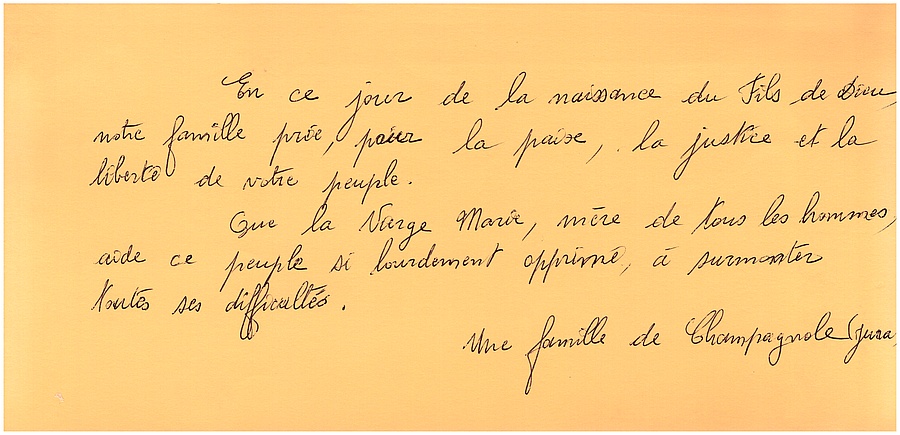 En ce jour de la naissance du Fils de Dieu,
notre famille prie, pour la paix, la justice et la
liberté de votre peuple.
Que la Vierge Marie, mère de tous les hommes,
aide ce peuple si lourdement opprimé, à surmonter
toutes ses difficultés.
Une famille de Champagnole (Jura